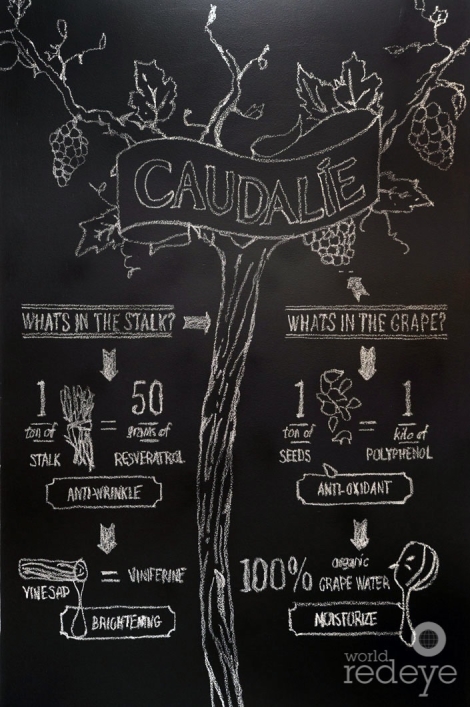 CAUDALÍE
WHATS IN THE STALK?
1 ton of STALK = 50 grams of RESVERATROL
ANTI-WRINKLE
VINESAP = VINIFERINE
BRIGHTENING
WHATS IN THE GRAPE?
1 ton of SEEDS = 1 kilo of POLYPHENOL
ANTI-OXIDANT
100% organic GRAPE WATER
MOISTURIZE
world
redeye